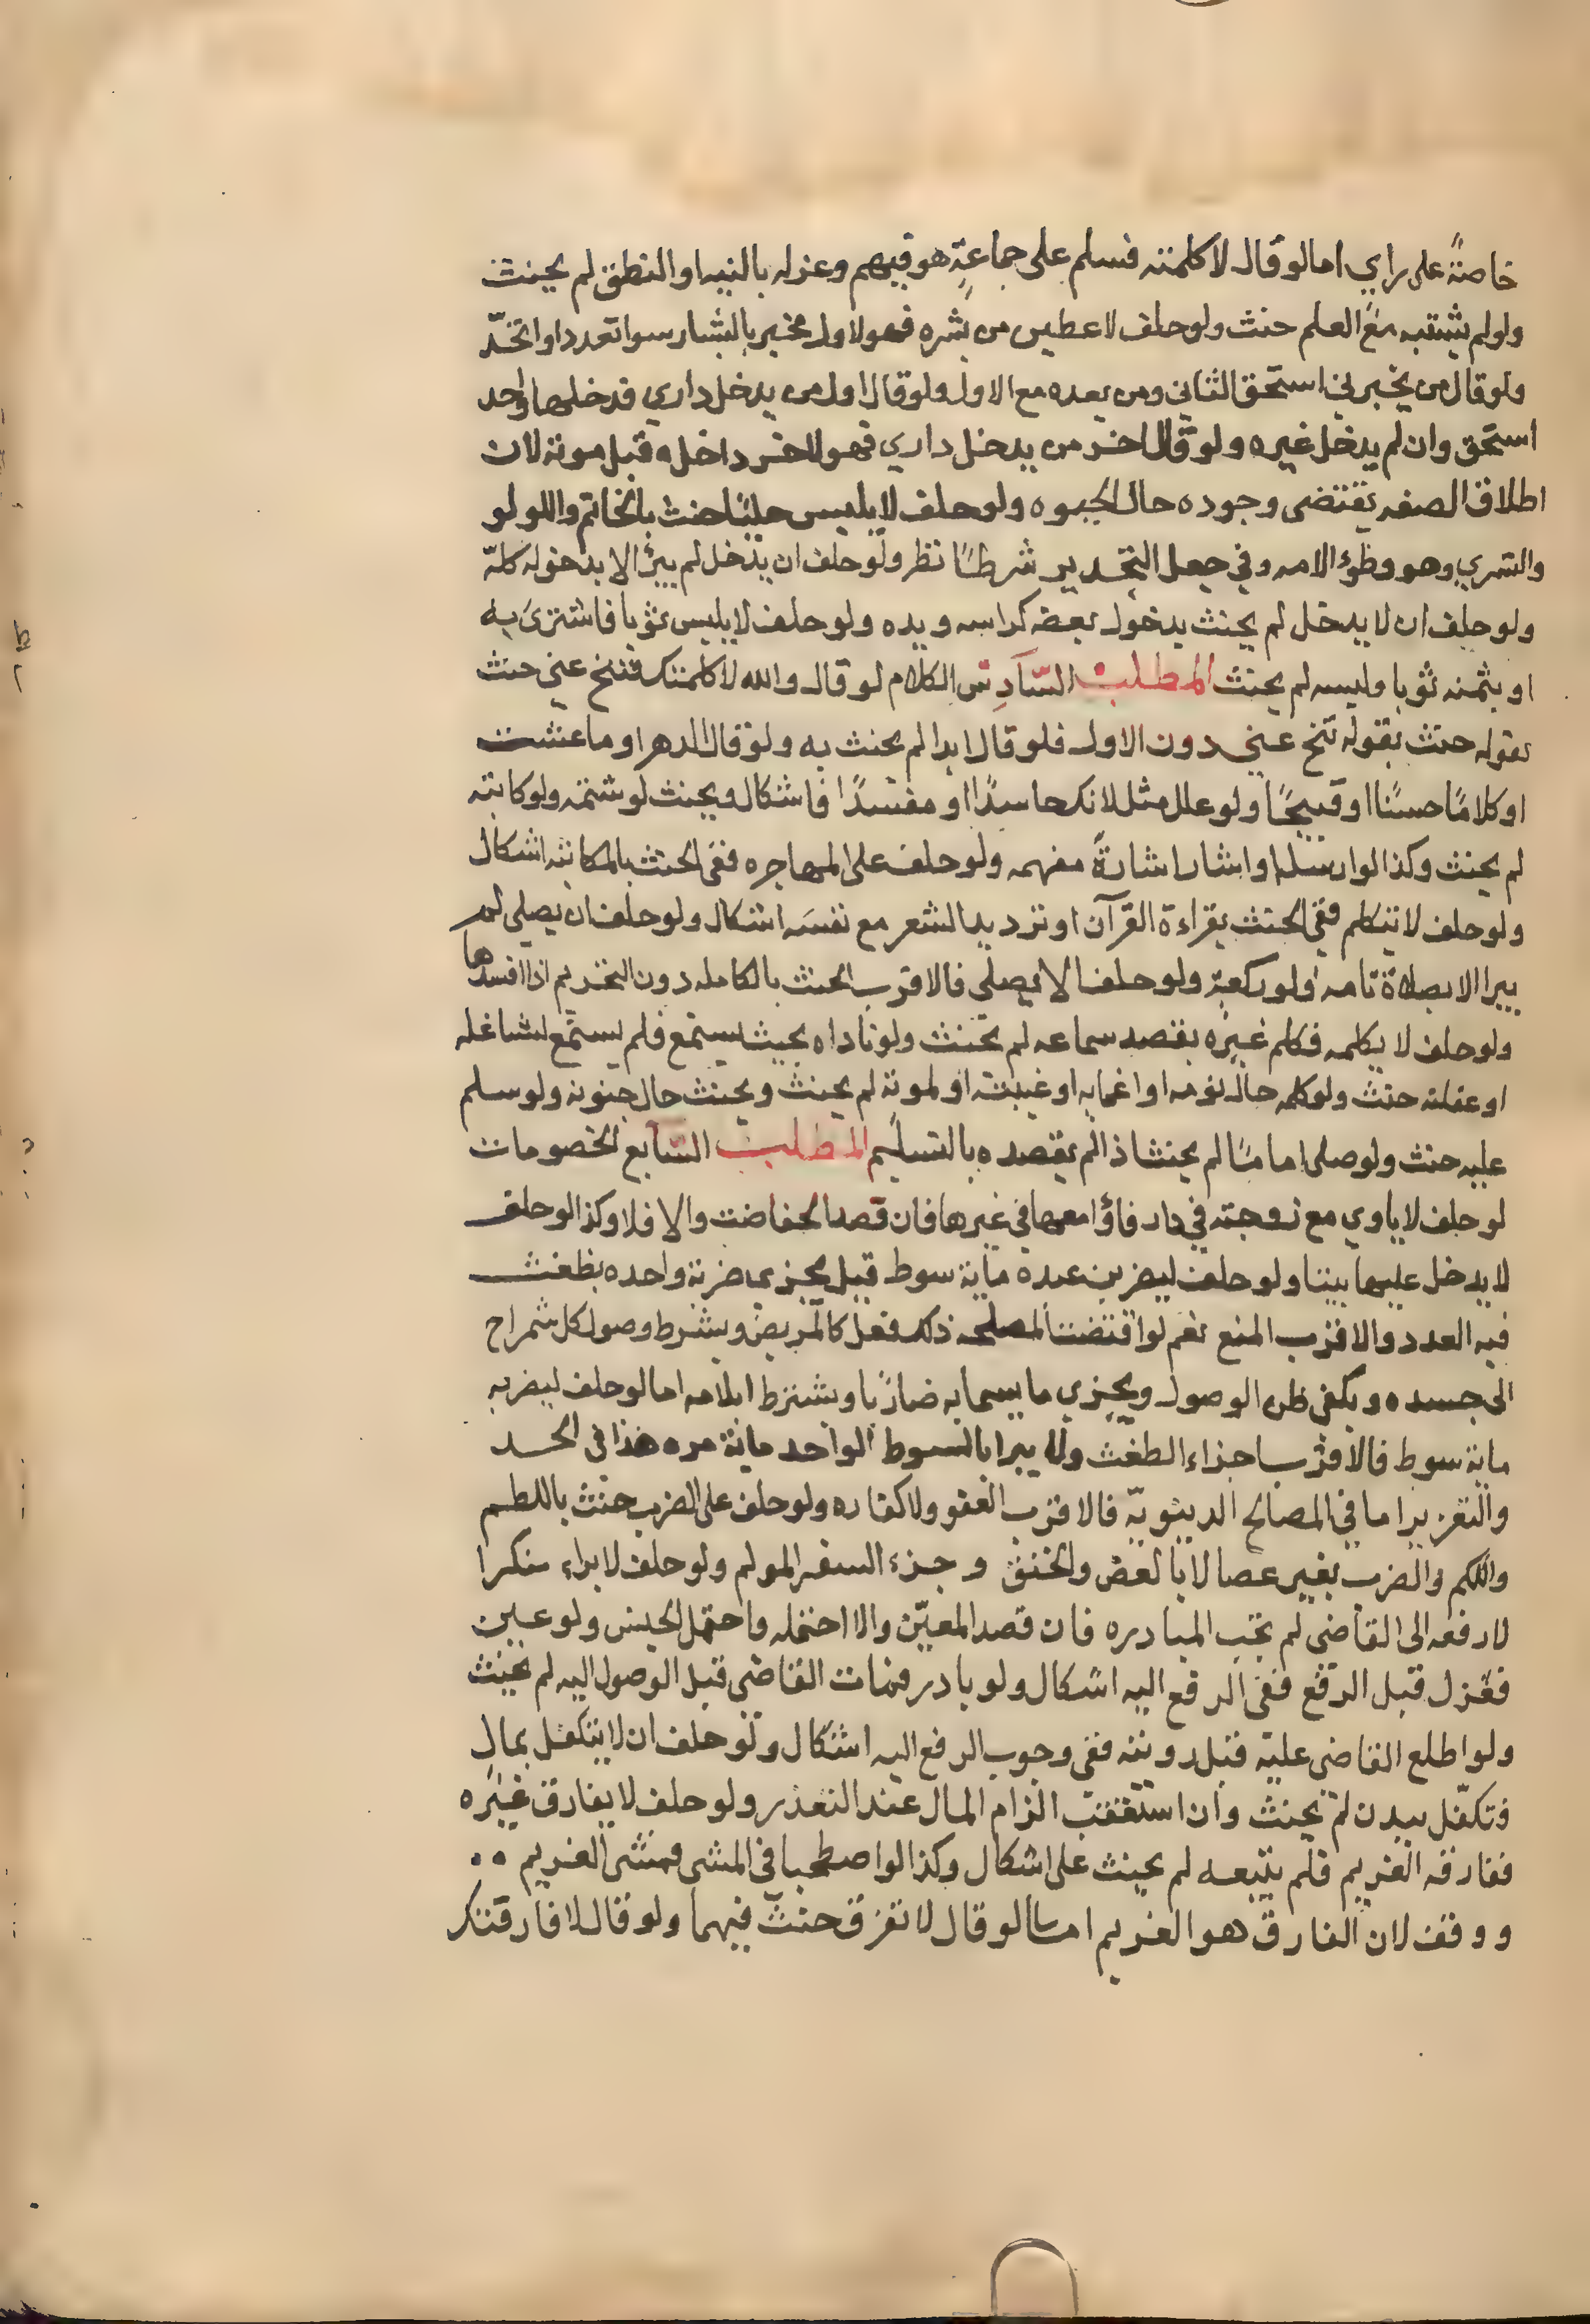 خاصةً على راي اما لو قال لا كلمته فسلم على جماعةٍ هو فيهم وعزله بالنيه او النطق لم يحنث
ولو لم يشتبه مع العلم حنث ولو حلف لاعطين من بشره فهو لاول مخبر بالبشار سوا تعدد او اتحد
ولو قال من يخبرني استحق الثاني ومن بعده مع الاول ولو قال اول من يدخل داري فدخلها واحد
استحق وان لم يدخل غيره ولو قال اخر من يدخل داري فهو لاخر داخله قبل موته لان
اطلاق الصفه يقتضى وجوده حال الحيوه ولو حلف لا يلبس حليًا حنث بالخاتم واللولو
والتسري وهو وطؤ الامه وفي جعل التخدير شرطًا نظر ولو حلف ان يدخل لم يبرأ الا بدخوله كلّه
ولو حلف ان لا يدخل لم يحنث بدخول بعضه كراسه ويده ولو حلف لا يلبس ثوبا فاشترى به
او بثمنه ثوبا ولبسه لم يحنث المطلب السّادس الكلام لو قال والله لا كلمتك فتنح عني حنث
بقوله حنث بقوله تنح عني دون الاول فلو قال ابدا لم يحنث به ولو قال الدهر او ما عشت
او كلامًا حسنًا او قبيحًا ولو علل مثل لانك حاسدًا او مفسدًا فاشكال ويحنث لو شتمه ولو كاتبه
لم يحنث وكذا لو ارسل او اشار اشارةً مفهمه ولو حلف على المهاجره ففي الحنث بالمكاتبه اشكال
ولو حلف لا يتكلم ففي الحنث بقراءة القرآن او ترديد الشعر مع نفسه اشكال ولو حلف ان يصلى لم
يبرا الا بصلاة تامه ولو ركعة ولو حلف الا يصلى فالاقرب الحنث بالكامله دون التحريم اذا افسدها
ولو حلف لا يكلمه فكلم غيره بقصد سماعه لم يحنث ولو ناداه بحيث يستمع فلم يستمع لتشاغله
او غفلته حنث ولو كلمه حال نومه او اغمايه او غيبته او لموته لم يحنث ويحنث حال جنونه ولو سلم
عليه حنث ولو صلى امامًا لم يحنث اذا لم يقصده بالتسليم المطلب السّابع الخصومات
لو حلف لا ياوي مع زوجته في دار فاؤا معها في غيرها فان قصد الجفا حنث والا فلا وكذا لو حلف
لا يدخل عليها بيتا ولو حلف ليضربن عبده ماية سوط قيل يجزى ضربة واحده بظغث
فيه العدد والاقرب المنع نعم لو اقتضت المصلحه ذلك فعل كالمريض ويشرط وصول كل شمراخ
الى جسده ويكفى ظن الوصول ويجزي ما يسما به ضاربًا ويشترط ايلامه اما لو حلف ليضربه
ماية سوط فالاقرب اجزاء الظغث ولا يبرا بالسوط الواحد مائة مره هذا في الحد
والتعزير اما في المصالح الدينويّه فالاقرب العفو ولا كفاره ولو حلف على الضرب حنث باللطم
واللكم والضرب بغير عصا لا بالعض والخنق وجزء الشعر المولم ولو حلف لا براء منكرا
لا رفعه الى القاضى لم تجب المبادره فان قصد المعيّن والا احتمله واحتمل الجنس ولو عين
فعزل قبل الرفع ففي الرفع اليه اشكال ولو بادر فمات القاضى قبل الوصول اليه لم يحنث
ولو اطلع القاضى عليه قبل رويته ففي وجوب الرفع اليه اشكال ولو حلف ان لا يتكفل بمال
فتكفّل ببدن لم يحنث وان استعقب الزام المال عند التعذر ولو حلف لا يفارق غيره
ففارقه الغريم فلم يتبعه لم يحنث على اشكال وكذا لو اصطحبا في المشى فمشى الغريم
ووقف لان المفارق هو الغريم اما لو قال لا نفرق حنث فيهما ولو قال لا فارقتك